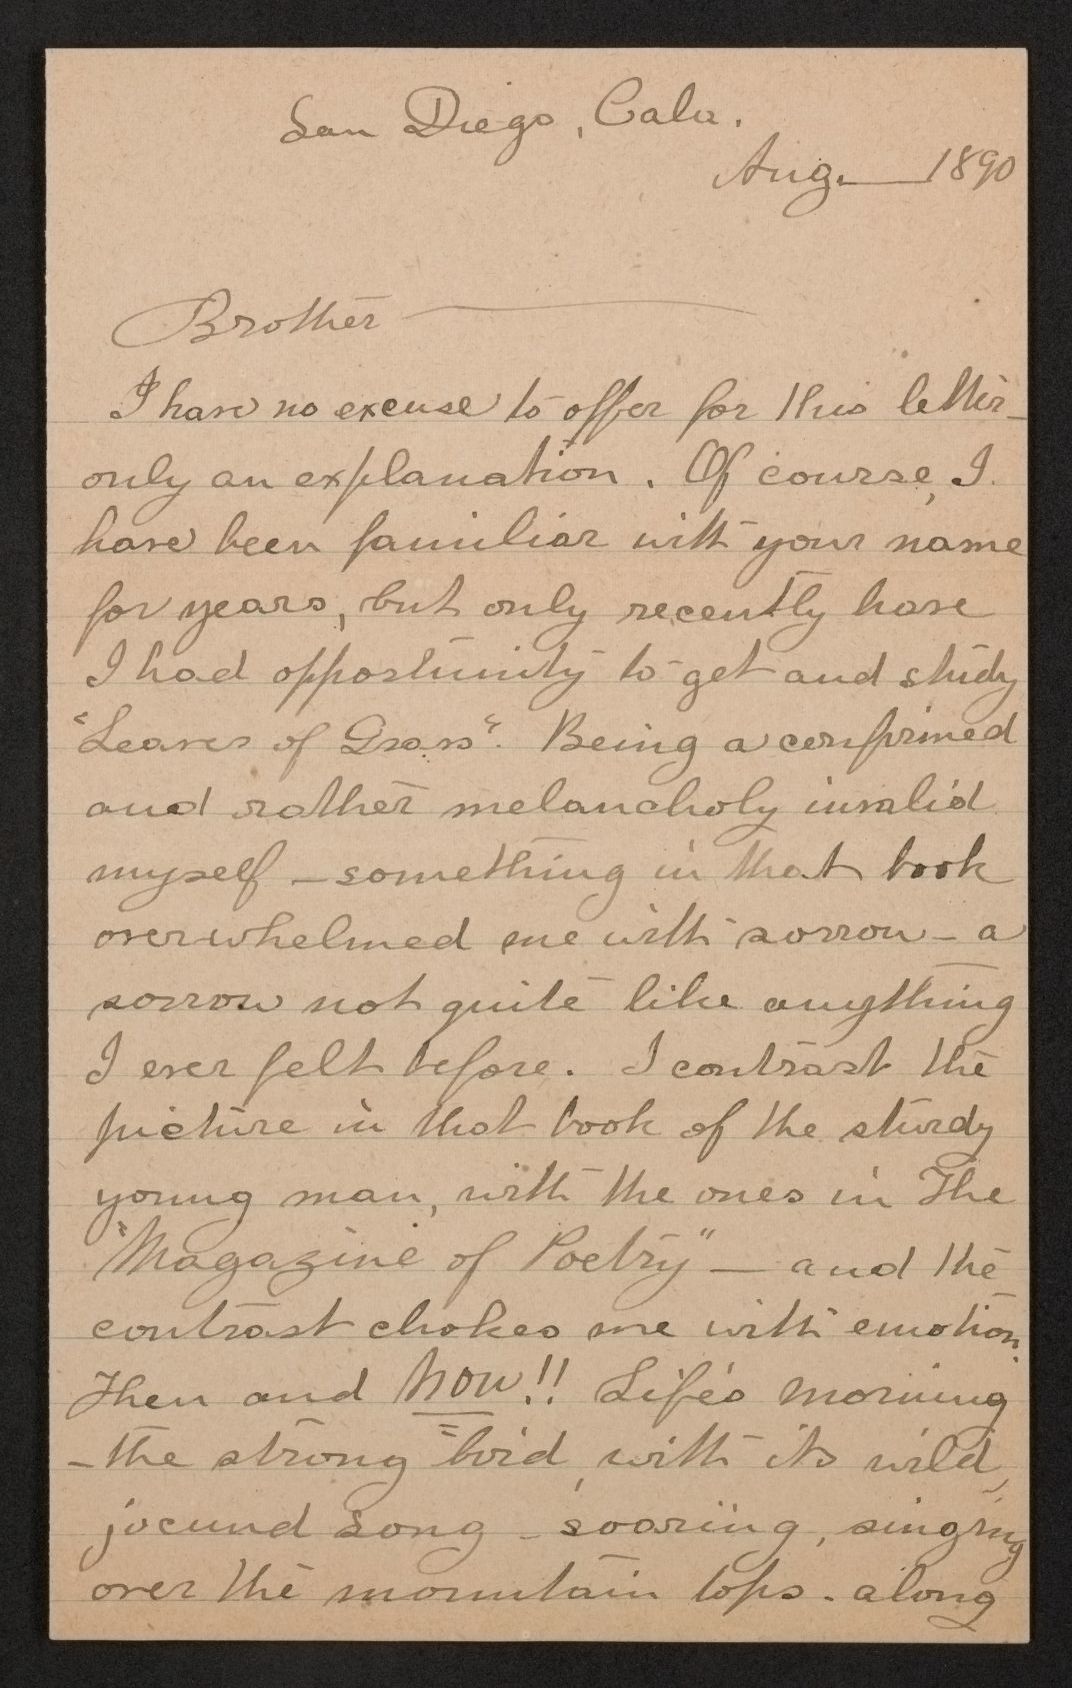 San Diego, Cala.
Aug. — 1890
Brother —
I have no excuse to offer for this letter –
only an explanation. Of course, I
have been familiar with your name
for years, but only recently have
I had opportunity to get and study
"Leaves of Grass". Being a confirmed
and rather melancholy invalid
myself – something in that book
overwhelmed me with sorrow – a
sorrow not quite like anything
I ever felt before. I contrast the
picture in that book of the sturdy
young man, with the ones in The
"Magazine of Poetry" – and the
contrast chokes me with emotion.
Then and now!! Life's morning
– the strong bird, with its wild,
jocund song – soaring, singing
over the mountain tops. along